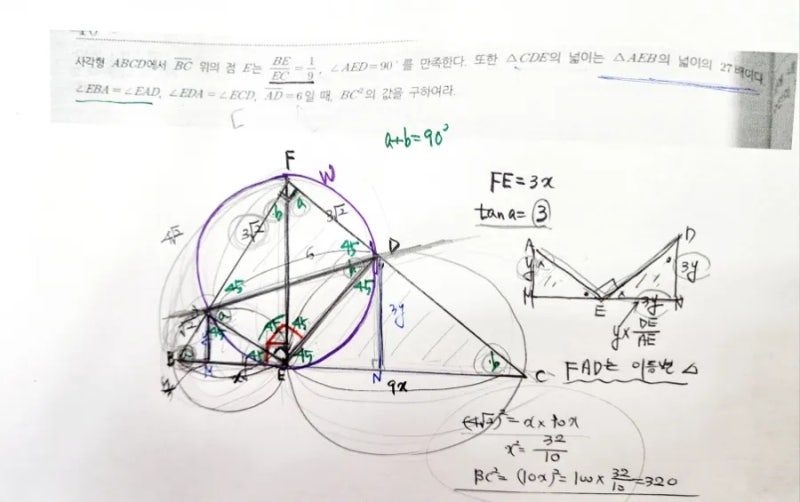 사각형 ABCD에서 BC 위의 점 E는 BE/EC = 1/9, ∠AED=90°를 만족한다. 또한 △CDE의 넓이는 △AEB의 넓이의 27배이다
∠EBA=∠EAD, ∠EDA=∠ECD, AD=6일 때, BC²의 값을 구하여라.
E
a+b=90°
F
W
b a
3√2
3√2
4√2
6
45 D
b
45
45
a
√2
45
3y
45 45
45 45
B
M
E
x
N
9x
b
C
FE=3x
tan a=3
A
y
M
E
D
3y
3y
N
y× DE/AE
FAD는 이등변 △
(4√2)²=x×10x
x²= 32/10
BC²=(10x)²=100× 32/10 =320